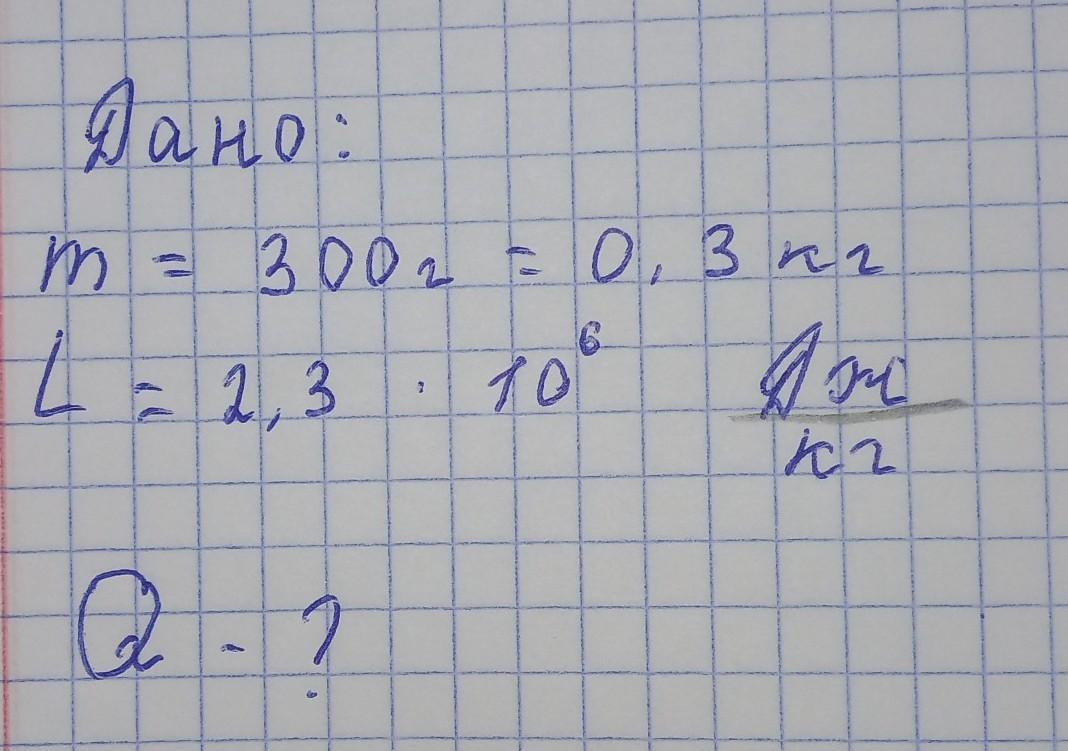 Дано:
m = 300г = 0,3 кг
L = 2,3 · 10⁶ Дж/кг
Q - ?